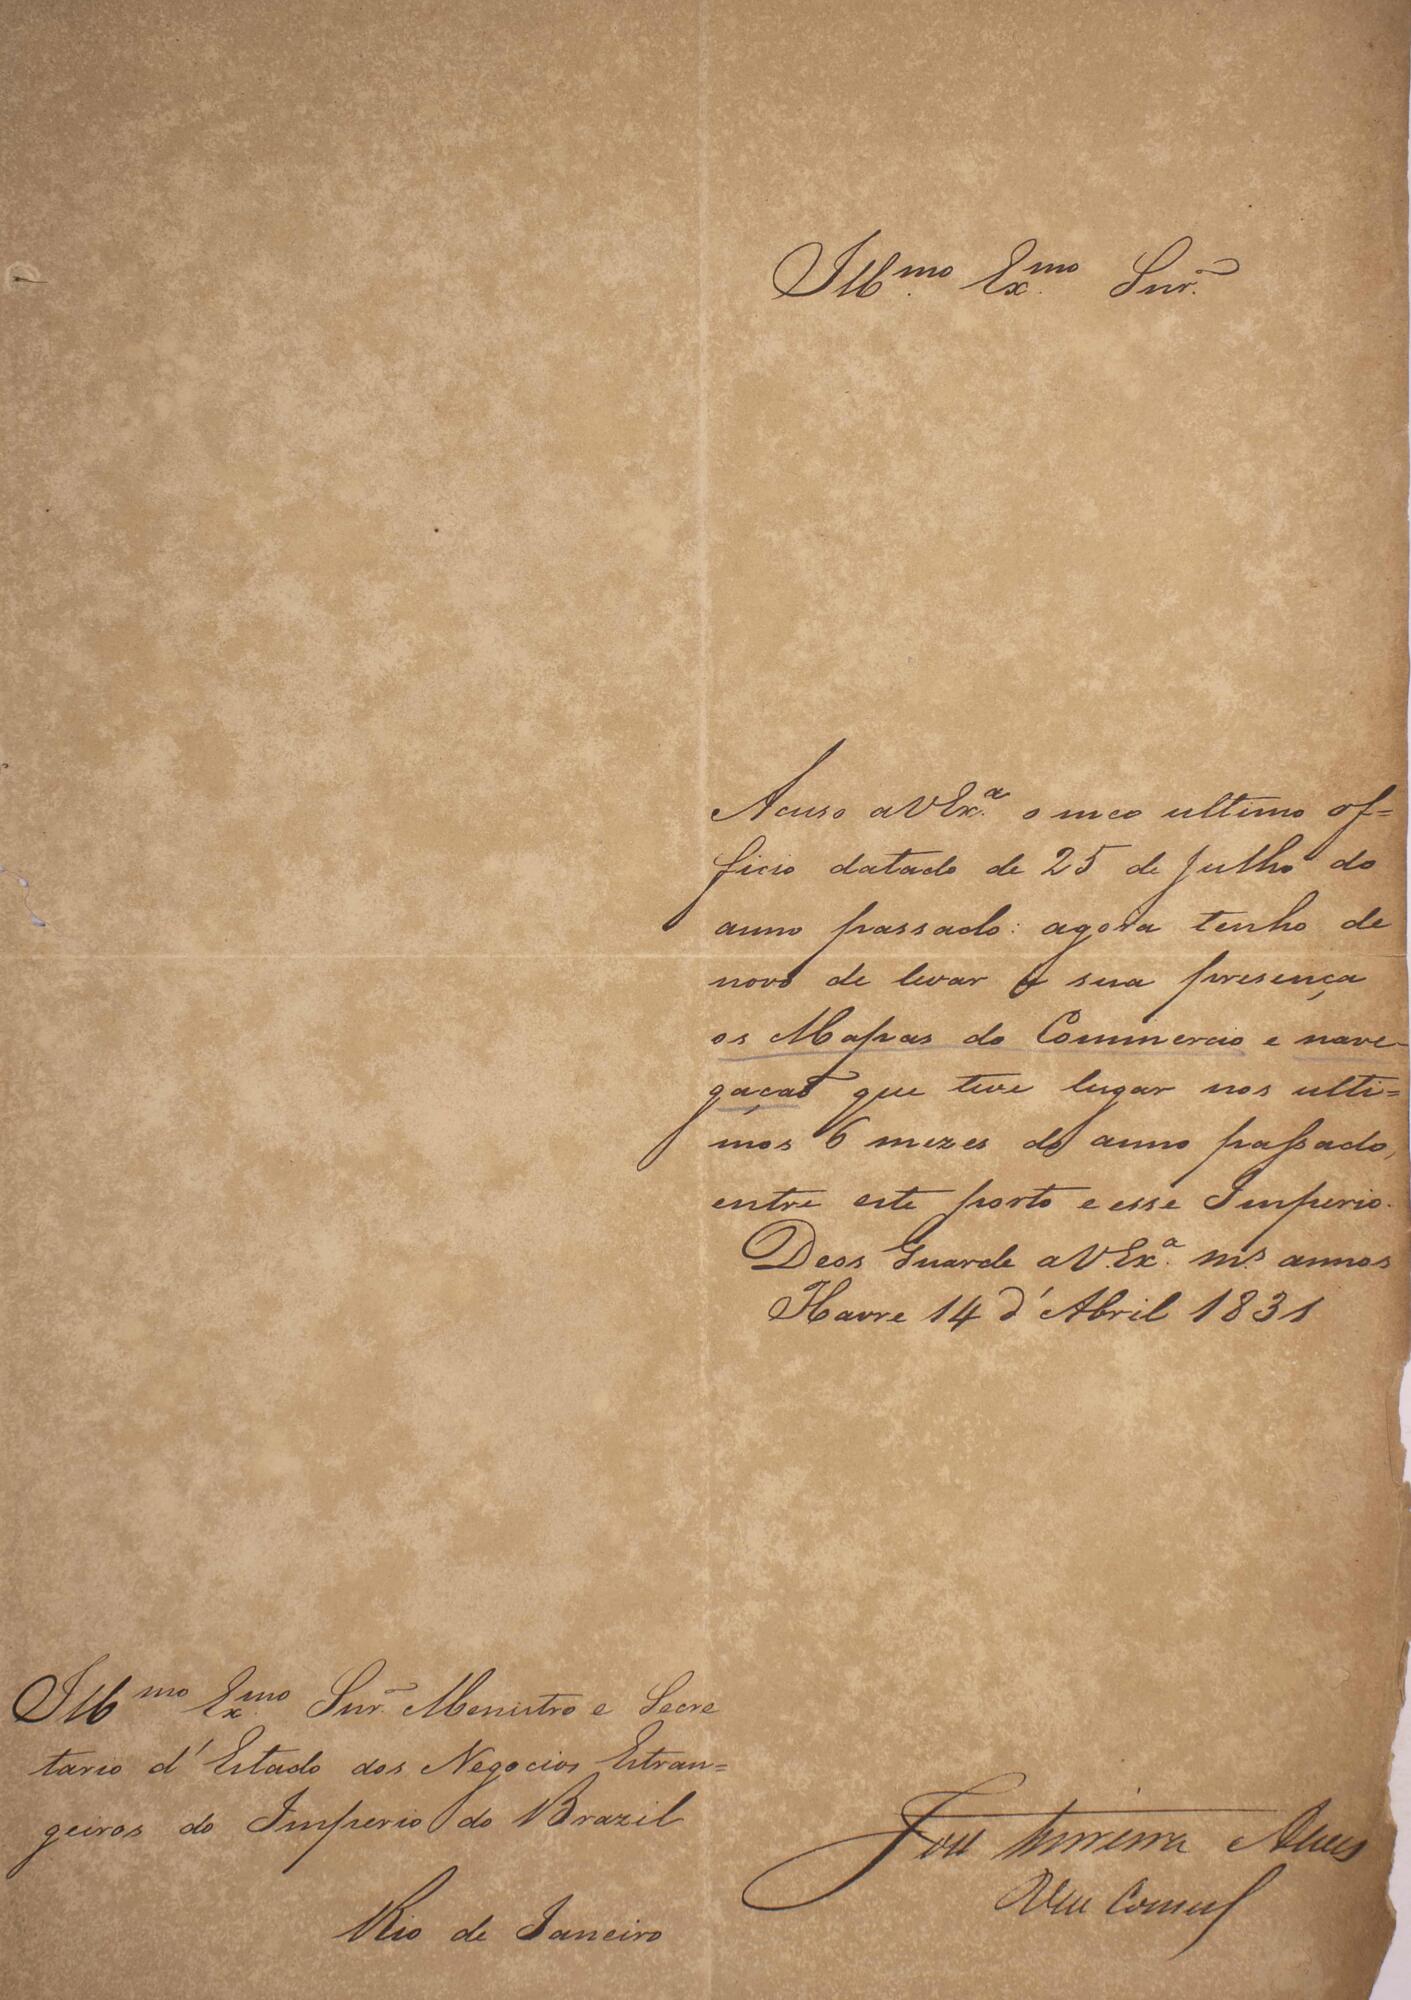 Ill.mo Ex.mo Snr.
Acuso a V Ex.a o meo ultimo of=
ficio datado de 25 de Julho do
anno passado: agora tenho de
novo de levar a sua presença
os Mapas do Commercio e nave-
gaçaõ que teve lugar nos ulti=
mos 6 mezes do anno passado,
entre este porto e esse Imperio.
Deos Guarde a V. Ex.a m.s annos
Havre 14 d'Abril 1831
Ill.mo Ex.mo Snr. Menistro e Secre
tario d'Estado dos Negocios Estran=
geiros do Imperio do Brazil
Rio de Janeiro
Vice Consul